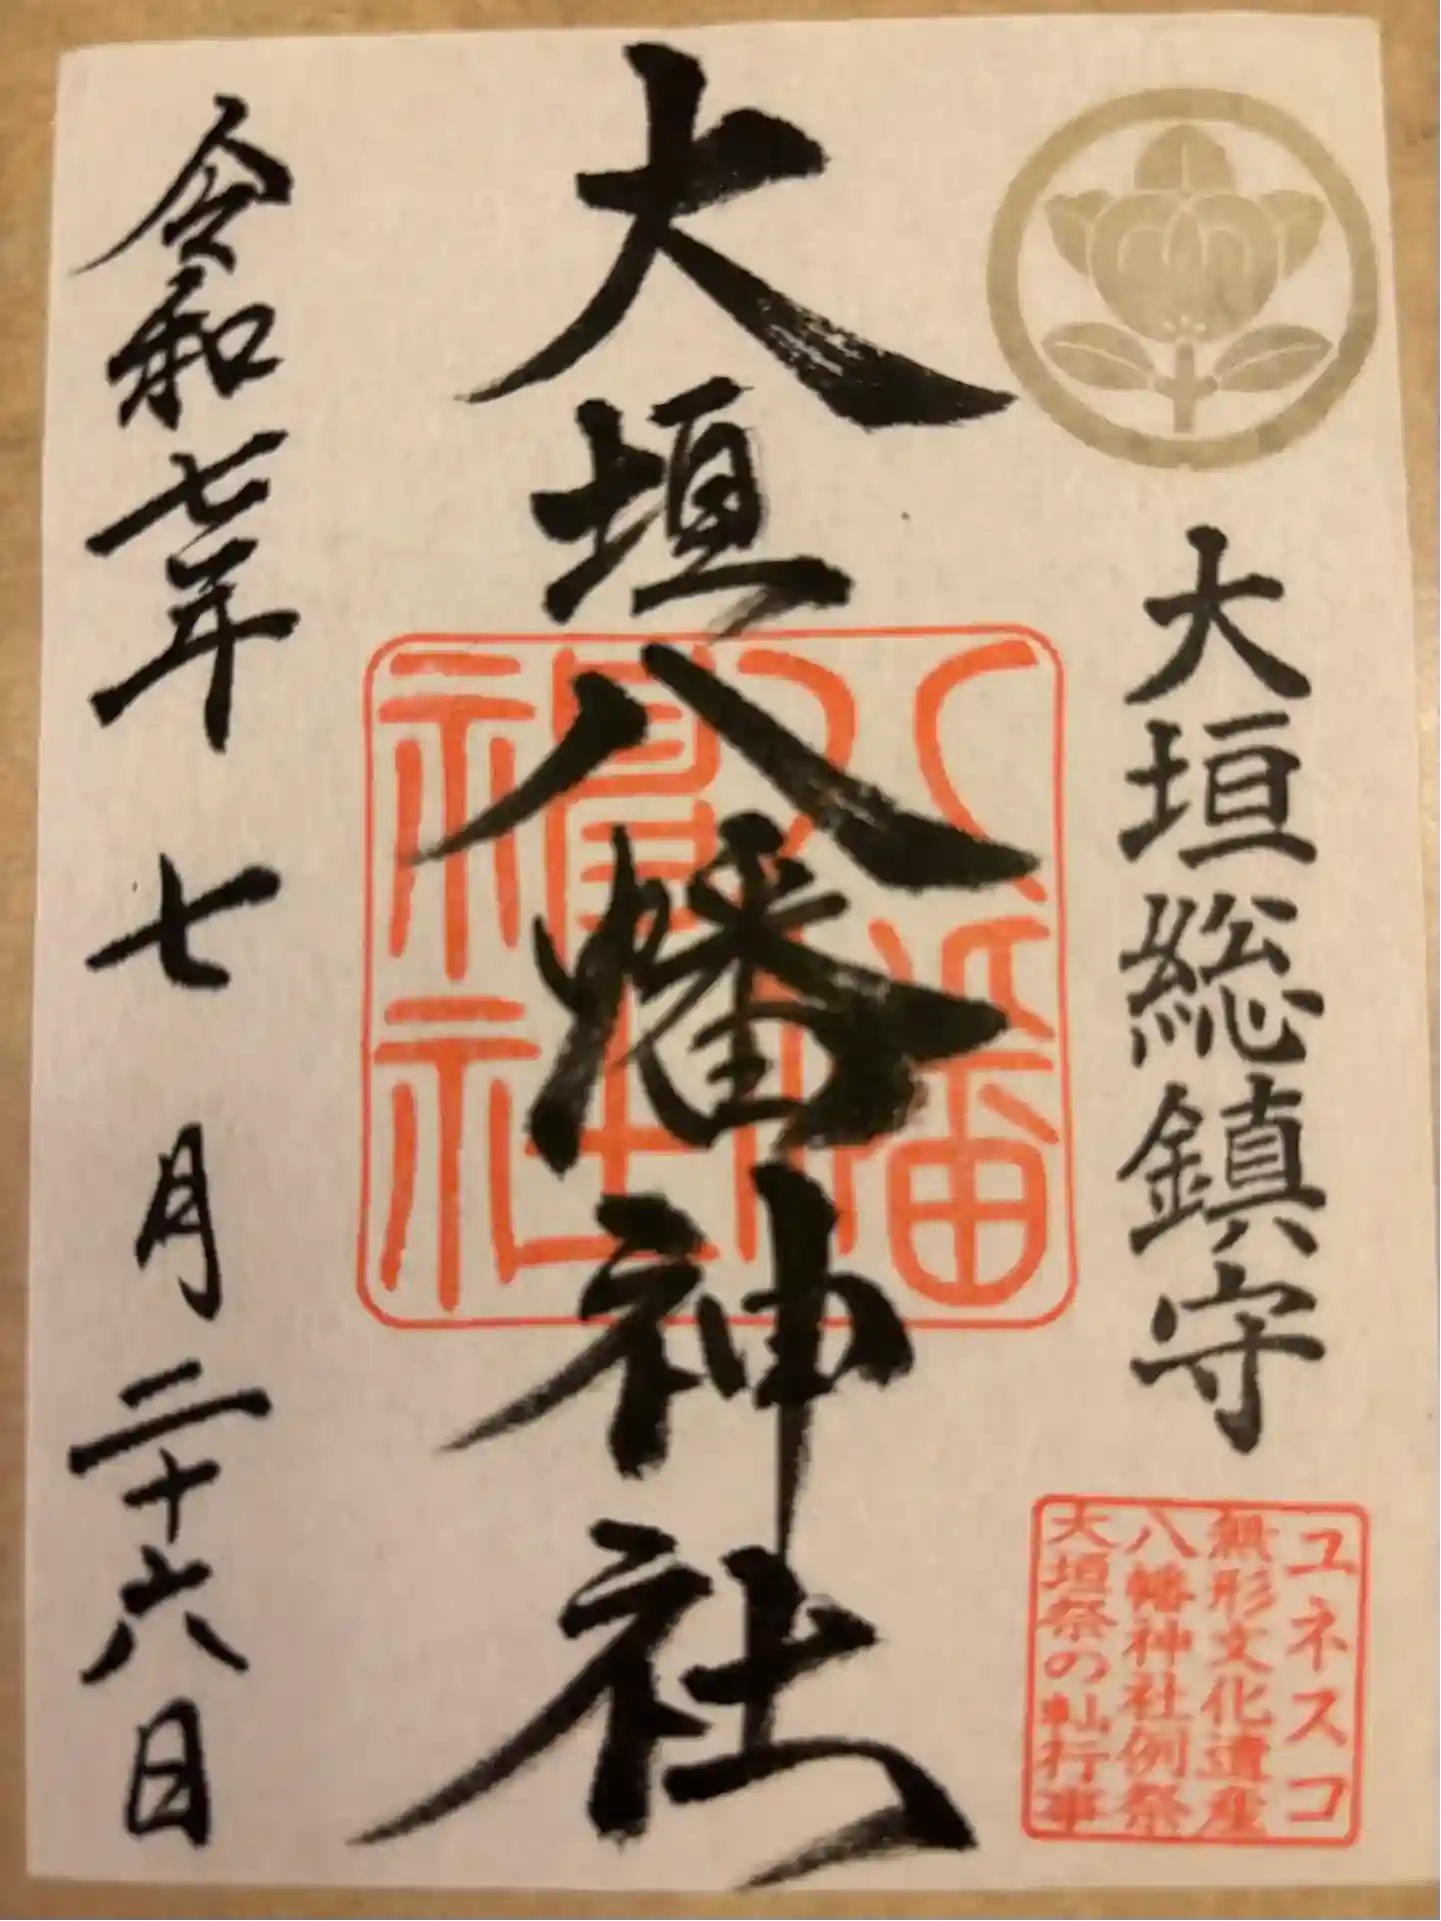 大垣総鎮守
ユネスコ
無形文化遺産
八幡神社例祭
大垣祭の軕行事
大垣八幡神社
八幡神社
令和七年七月二十六日